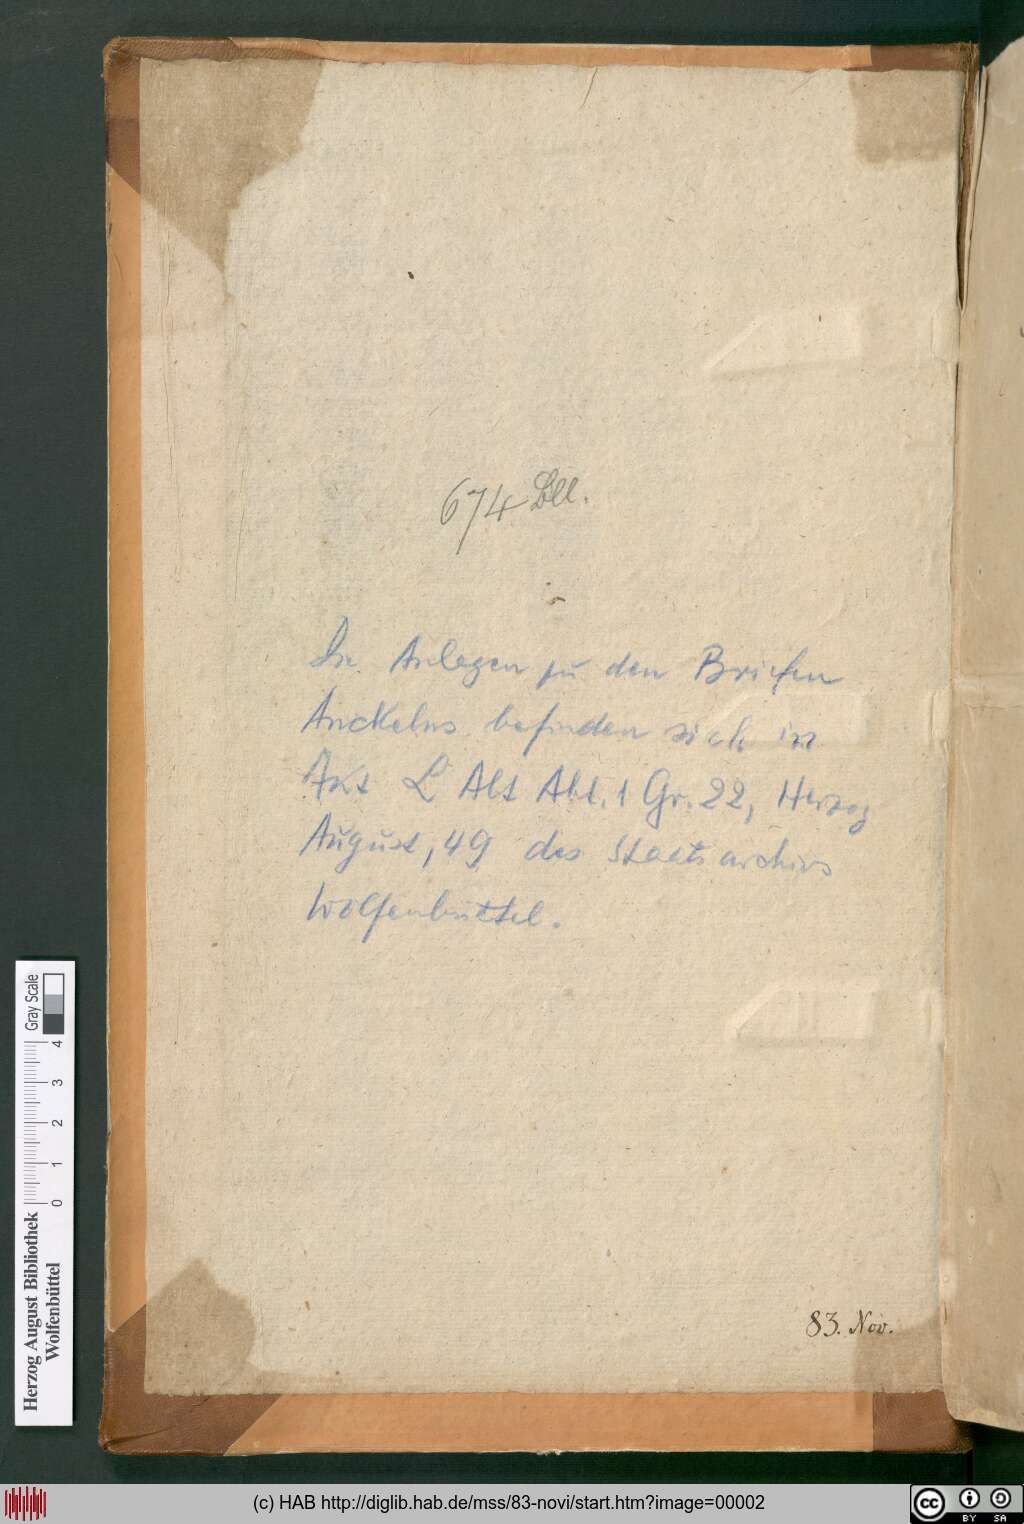 674 Bll.
Die Anlagen zu den Briefen
Anckelns befinden sich in
Akt L Alt Abt. 1 Gr. 22, Herzog
August, 49 des Staatsarchivs
Wolfenbüttel.
83. Nov.
Herzog August Bibliothek
Wolfenbüttel
0 1 2 3 4
Gray Scale
(c) HAB http://diglib.hab.de/mss/83-novi/start.htm?image=00002
cc BY SA